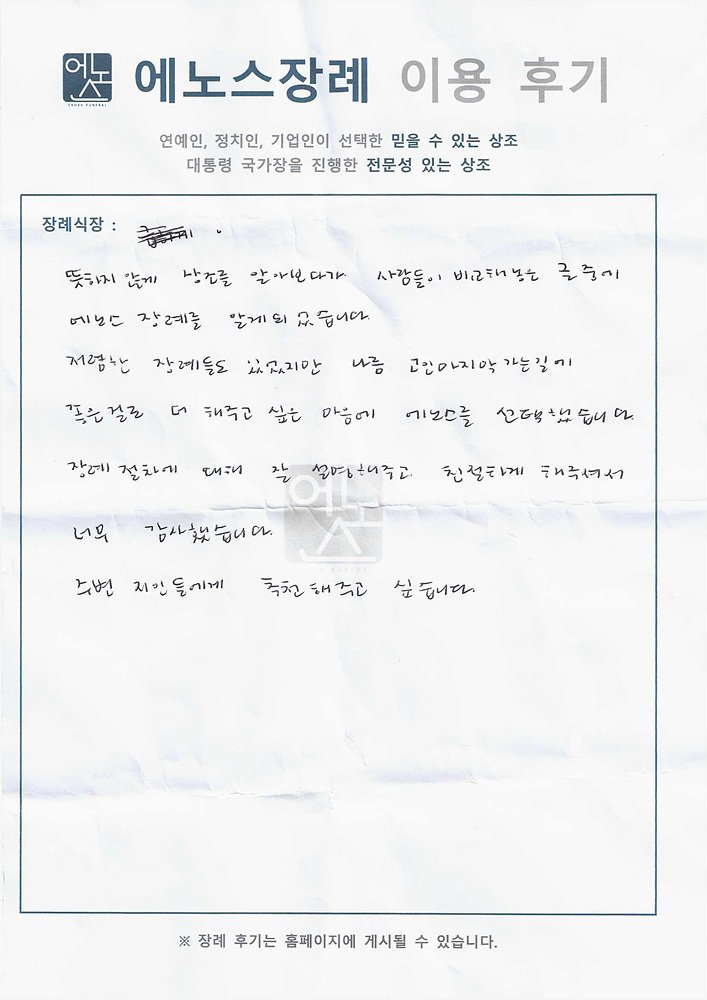 에노스장례 이용 후기
연예인, 정치인, 기업인이 선택한 믿을 수 있는 상조
대통령 국가장을 진행한 전문성 있는 상조
장례식장 :
뜻하지 않게 상조를 알아보다가 사람들이 비교해놓은 글 중에
에노스 장례를 알게되었습니다.
저렴한 장례들도 있었지만 나름 고인마지막 가는길에
좋은걸로 더 해주고 싶은 마음에 에노스를 선택했습니다.
장례 절차에 대해 잘 설명해주고 친절하게 해주셔서
너무 감사했습니다.
주변 지인들에게 추천해주고 싶습니다.
※ 장례 후기는 홈페이지에 게시될 수 있습니다.